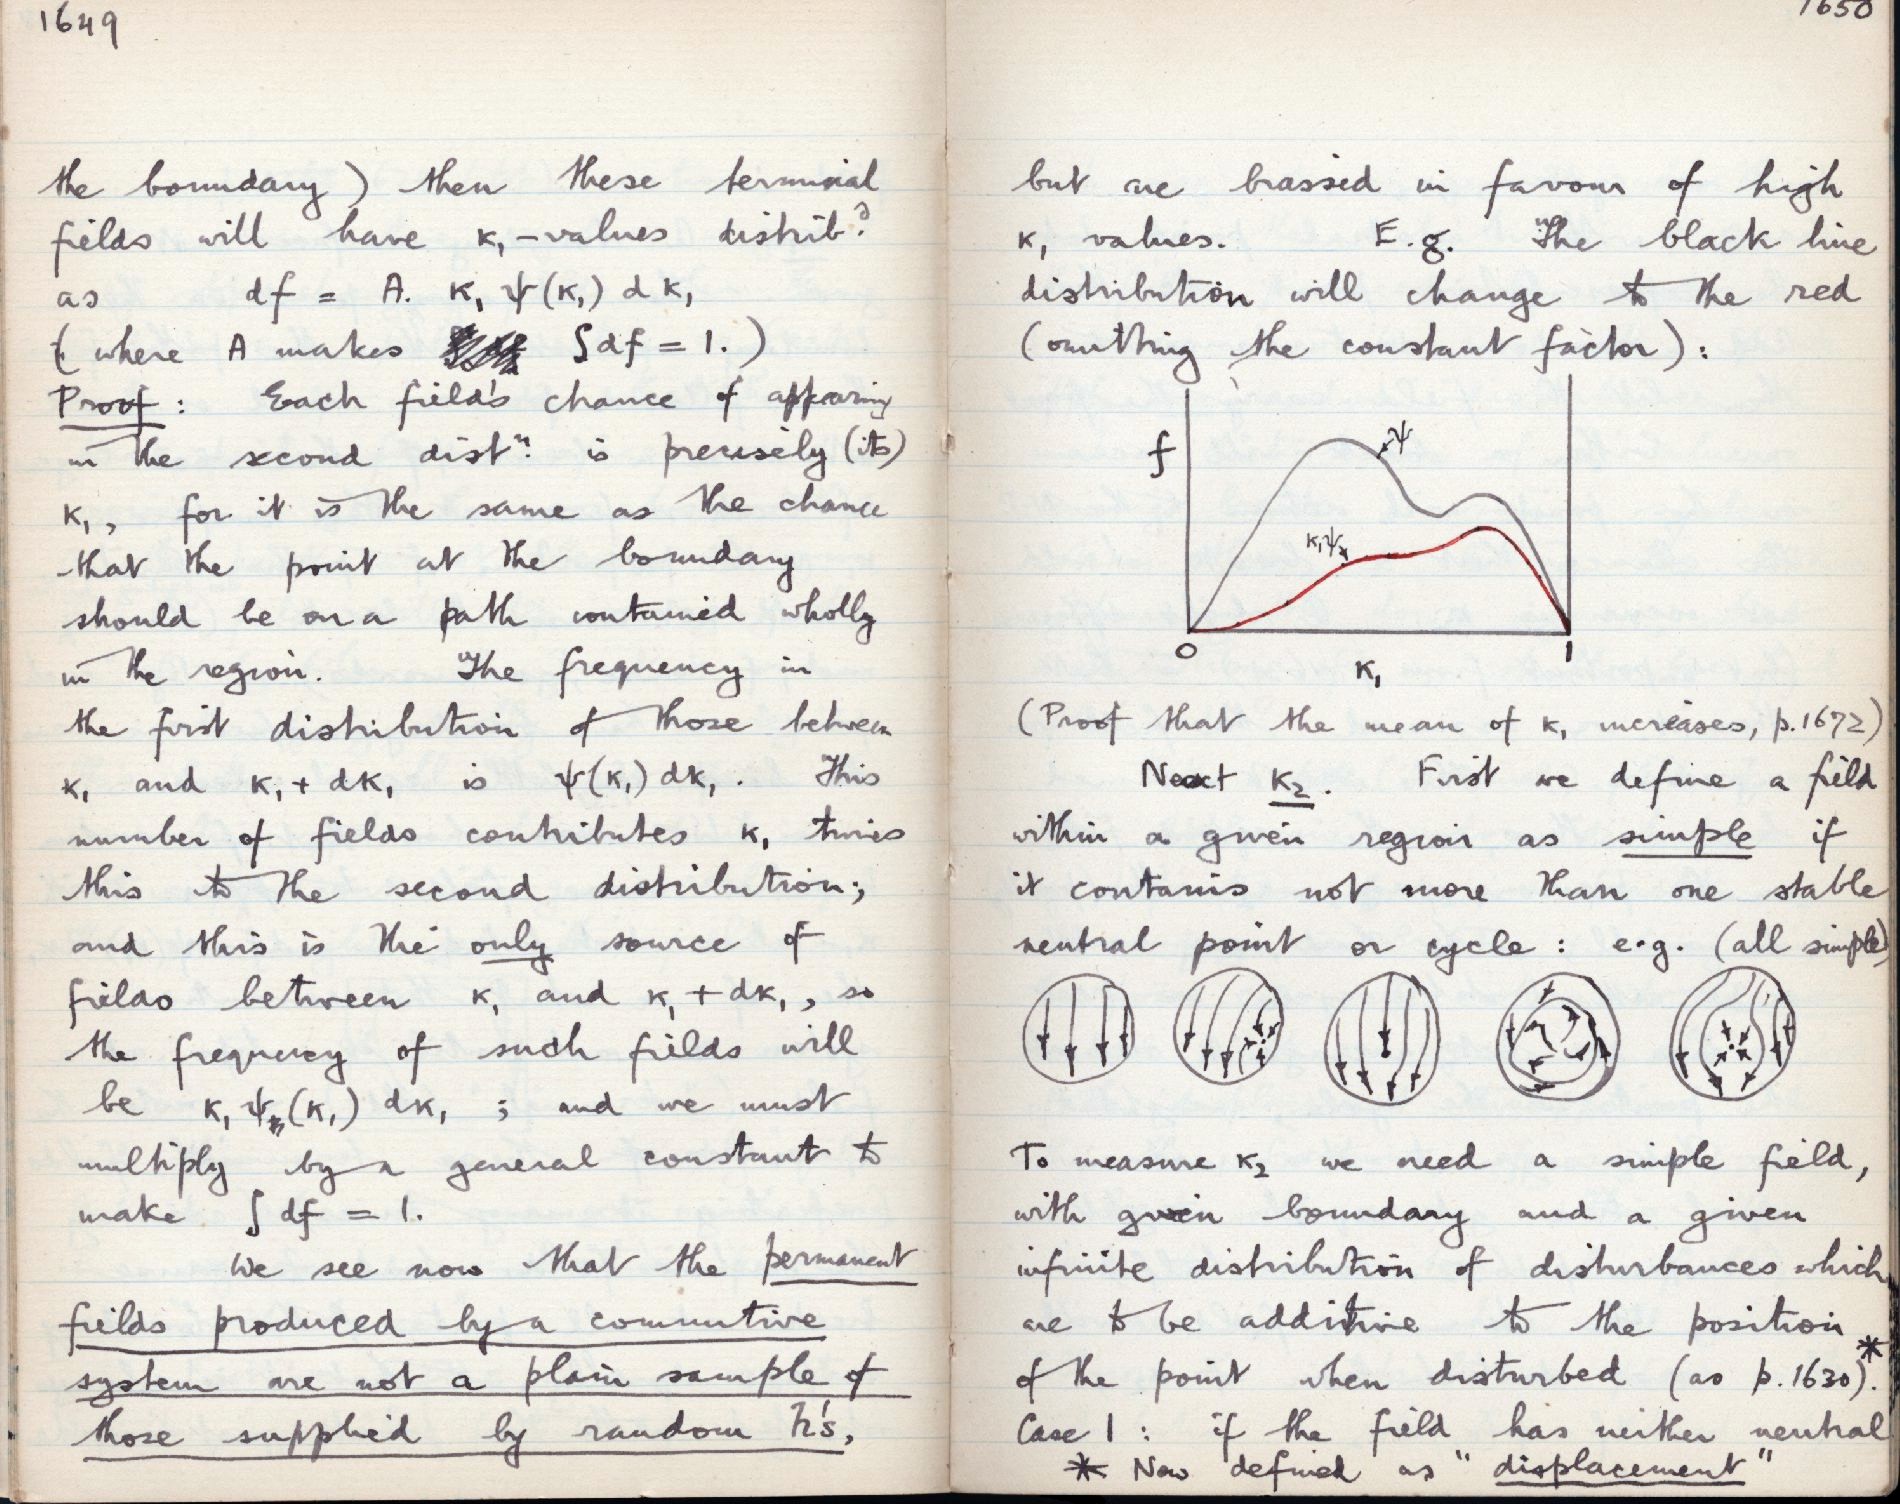 1649
the boundary) then these terminal
fields will have κ₁-values distrib.ᵈ
as df = A. κ₁ ψ(κ₁) dκ₁
(where A makes ∫df = 1.)
Proof: Each field's chance of appearing
in the second distⁿ. is precisely (its)
κ₁, for it is the same as the chance
that the point at the boundary
should be on a path contained wholly
in the region. The frequency in
the first distribution of those between
κ₁ and κ₁ + dκ₁ is ψ(κ₁) dκ₁. This
number of fields contributes κ₁ times
this to the second distribution;
and this is the only source of
fields between κ₁ and κ₁ + dκ₁, so
the frequency of such fields will
be κ₁ψ(κ₁) dκ₁ ; and we must
multiply by a general constant to
make ∫df = 1.
We see now that the permanent
fields produced by a commutive
system are not a plain sample of
those supplied by random h's,
1650
but are biassed in favour of high
κ₁ values. E.g. The black line
distribution will change to the red
(omitting the constant factor):
f
ψ
κ₁ψ
0
1
κ₁
(Proof that the mean of κ₁ increases, p.1672)
Next κ₂. First we define a field
within a given region as simple if
it contains not more than one stable
neutral point or cycle: e.g. (all simple)
To measure κ₂ we need a simple field,
with given boundary and a given
infinite distribution of disturbances which
are to be additive to the position
of the point when disturbed (as p.1630).*
Case 1: if the field has neither neutral
* Now defined as "displacement"